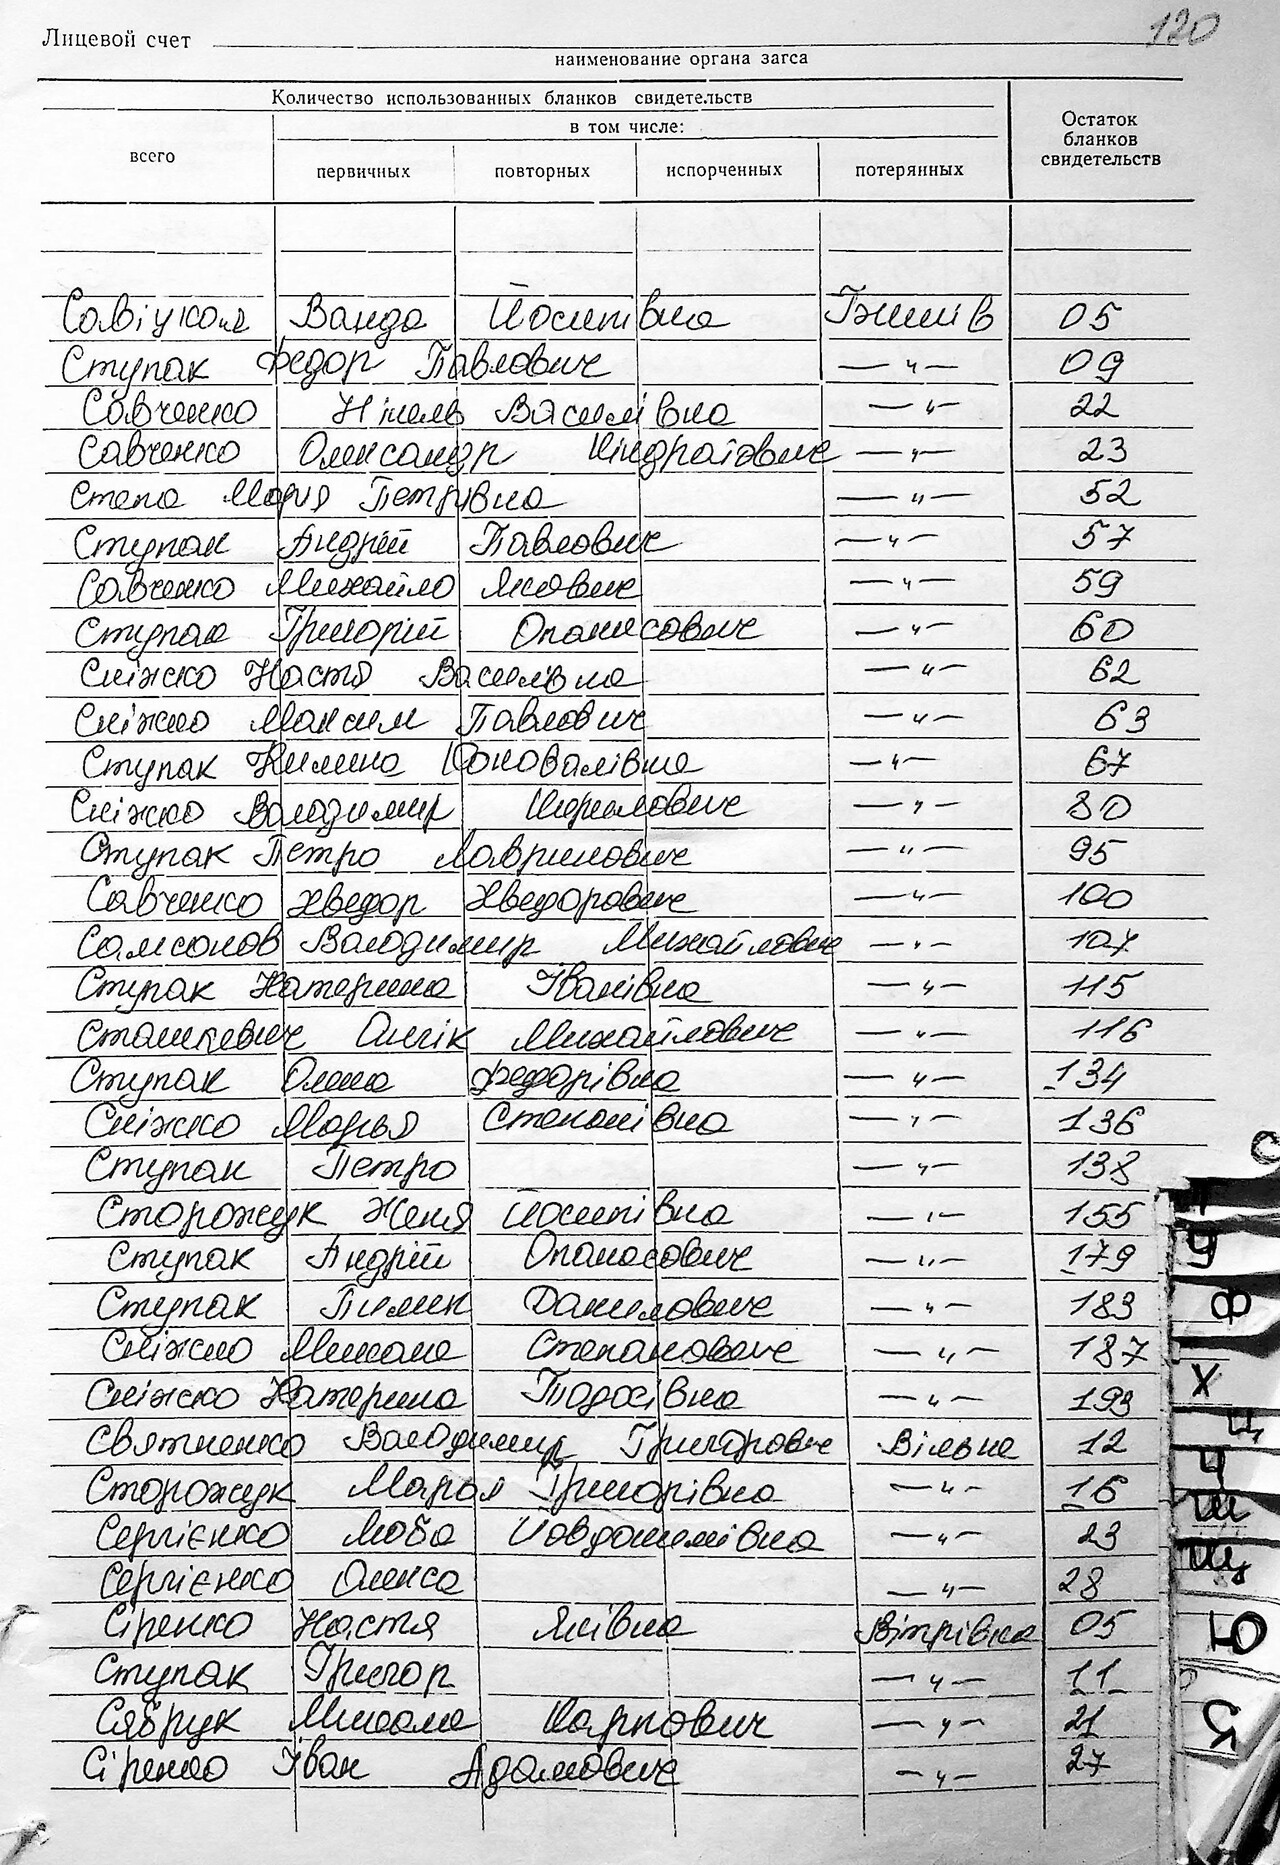 120
Лицевой счет
наименование органа загса
Количество использованных бланков свидетельств
в том числе:
всего
первичных повторных испорченных потерянных
Остаток бланков свидетельств
Ванда Йосипівна 05
Ступак Федор Павлович —〃— 09
Савченко Нінель Василівна —〃— 22
Савченко Олександр Кіндратович —〃— 23
Степа Марія Петрівна —〃— 52
Ступак Андрій Павлович —〃— 57
Савченко Михайло Якович —〃— 59
Ступак Григорій Опанасович —〃— 60
Сніжко Настя Василівна —〃— 62
Сніжко Максим Павлович —〃— 63
Ступак Килина Коновалівна —〃— 67
Сніжко Володимир Кирилович —〃— 80
Ступак Петро Лавринович —〃— 95
Савченко Хведор Хведорович —〃— 100
Самсонов Володимир Михайлович —〃— 107
Ступак Катерина Іванівна —〃— 115
Сташкевич Михайлович —〃— 116
Ступак Олена Федорівна —〃— 134
Сніжко Марья Степанівна —〃— 136
Ступак Петро —〃— 138
Сторожук Женя Йосипівна —〃— 155
Ступак Андрій Опанасович —〃— 179
Ступак Пилип Данилович —〃— 183
Сніжко Микола Степанович —〃— 187
Сніжко Катерина Тодосівна —〃— 193
Святненко Володимир Григорович Вільна 12
Сторожук Марья Григорівна —〃— 16
Сергієнко Люба —〃— 23
Сергієнко Олекса —〃— 28
Сіренко Настя Яківна Вітрівка 05
Ступак Григор —〃— 11
Сябрук Микола Карпович —〃— 21
Сіренко Іван Адамович —〃— 27
С
У
Ф
Х
Ц
Ч
Ш
Щ
Ю
Я